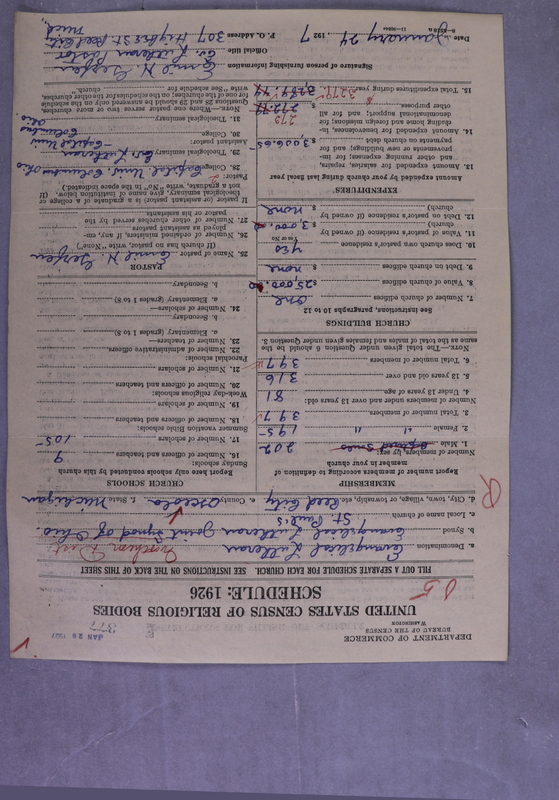 DEPARTMENT OF COMMERCE
BUREAU OF THE CENSUS
WASHINGTON
JAN 28 1927
377
UNITED STATES CENSUS OF RELIGIOUS BODIES
SCHEDULE: 1926
85
FILL OUT A SEPARATE SCHEDULE FOR EACH CHURCH. SEE INSTRUCTIONS ON THE BACK OF THIS SHEET
a. Denomination Evangelical Lutheran Northern Dist
b. Synod Evangelical Lutheran Joint Synod of Ohio.
c. Local name of church St Paul's
d. City, town, village, or township, etc. Reed City e. County Osceola f. State Michigan
MEMBERSHIP
Report number of members according to definition of member in your church
Number of members, by sex:
1. Male 202
2. Female " " 195
3. Total number of members 397
Number of members under and over 13 years old:
4. Under 13 years of age 81
5. 13 years old and over 316
6. Total number of members 397
NOTE.—The total given under Question 6 should be the same as the total of males and females given under Question 3.
CHURCH BUILDINGS
See instructions, paragraphs 10 to 12
7. Number of church edifices one
8. Value of church edifices $ 25,000.
9. Debt on church edifices $ none
10. Does church own pastor's residence yes
Yes or No
11. Value of pastor's residence (if owned by church) $ 3,000.
12. Debt on pastor's residence (if owned by church) $ none
EXPENDITURES
Amount expended by your church during last fiscal year
13. Amount expended for salaries, repairs, and other running expenses; for improvements or new buildings; and for payments on church debt $ 3,006.65
14. Amount expended for benevolences, including home and foreign missions; for denominational support; and for all other purposes $ 272.79 273
15. Total expenditures during year $ 3,279.44 3279
CHURCH SCHOOLS
Report here only schools conducted by this church
Sunday schools:
16. Number of officers and teachers 9
17. Number of scholars 105
Summer vacation Bible schools:
18. Number of officers and teachers
19. Number of scholars
Week-day religious schools:
20. Number of officers and teachers
21. Number of scholars
Parochial schools:
22. Number of administrative officers
23. Number of teachers—
a. Elementary (grades 1 to 8)
b. Secondary
24. Number of scholars—
a. Elementary (grades 1 to 8)
b. Secondary
PASTOR
25. Name of pastor Emil H. Gerfen
(If church has no pastor, write "None")
26. Number of ordained ministers, if any, employed as assistant pastors
27. Number of other churches served by the pastor or his assistants
If pastor (or assistant pastor) is a graduate of a college or theological seminary, give name of institution below. (If not a graduate, write "No" in the space indicated.)
Pastor:
28. College Capital Univ. Columbus Ohio
29. Theological seminary Ev. Lutheran
Assistant pastor: Capital Univ
30. College Columbus
31. Theological seminary Ohio
NOTE.—Where one pastor serves two or more churches, Questions 25 and 28 should be answered only on the schedule for one of the churches; on the schedules for the other churches, write "See schedule for church."
Signature of person furnishing information Emil H. Gerfen
Official title Ev. Lutheran Pastor
P. O. Address 307 Higbee St. Reed City Mich.
Date January 24 1927